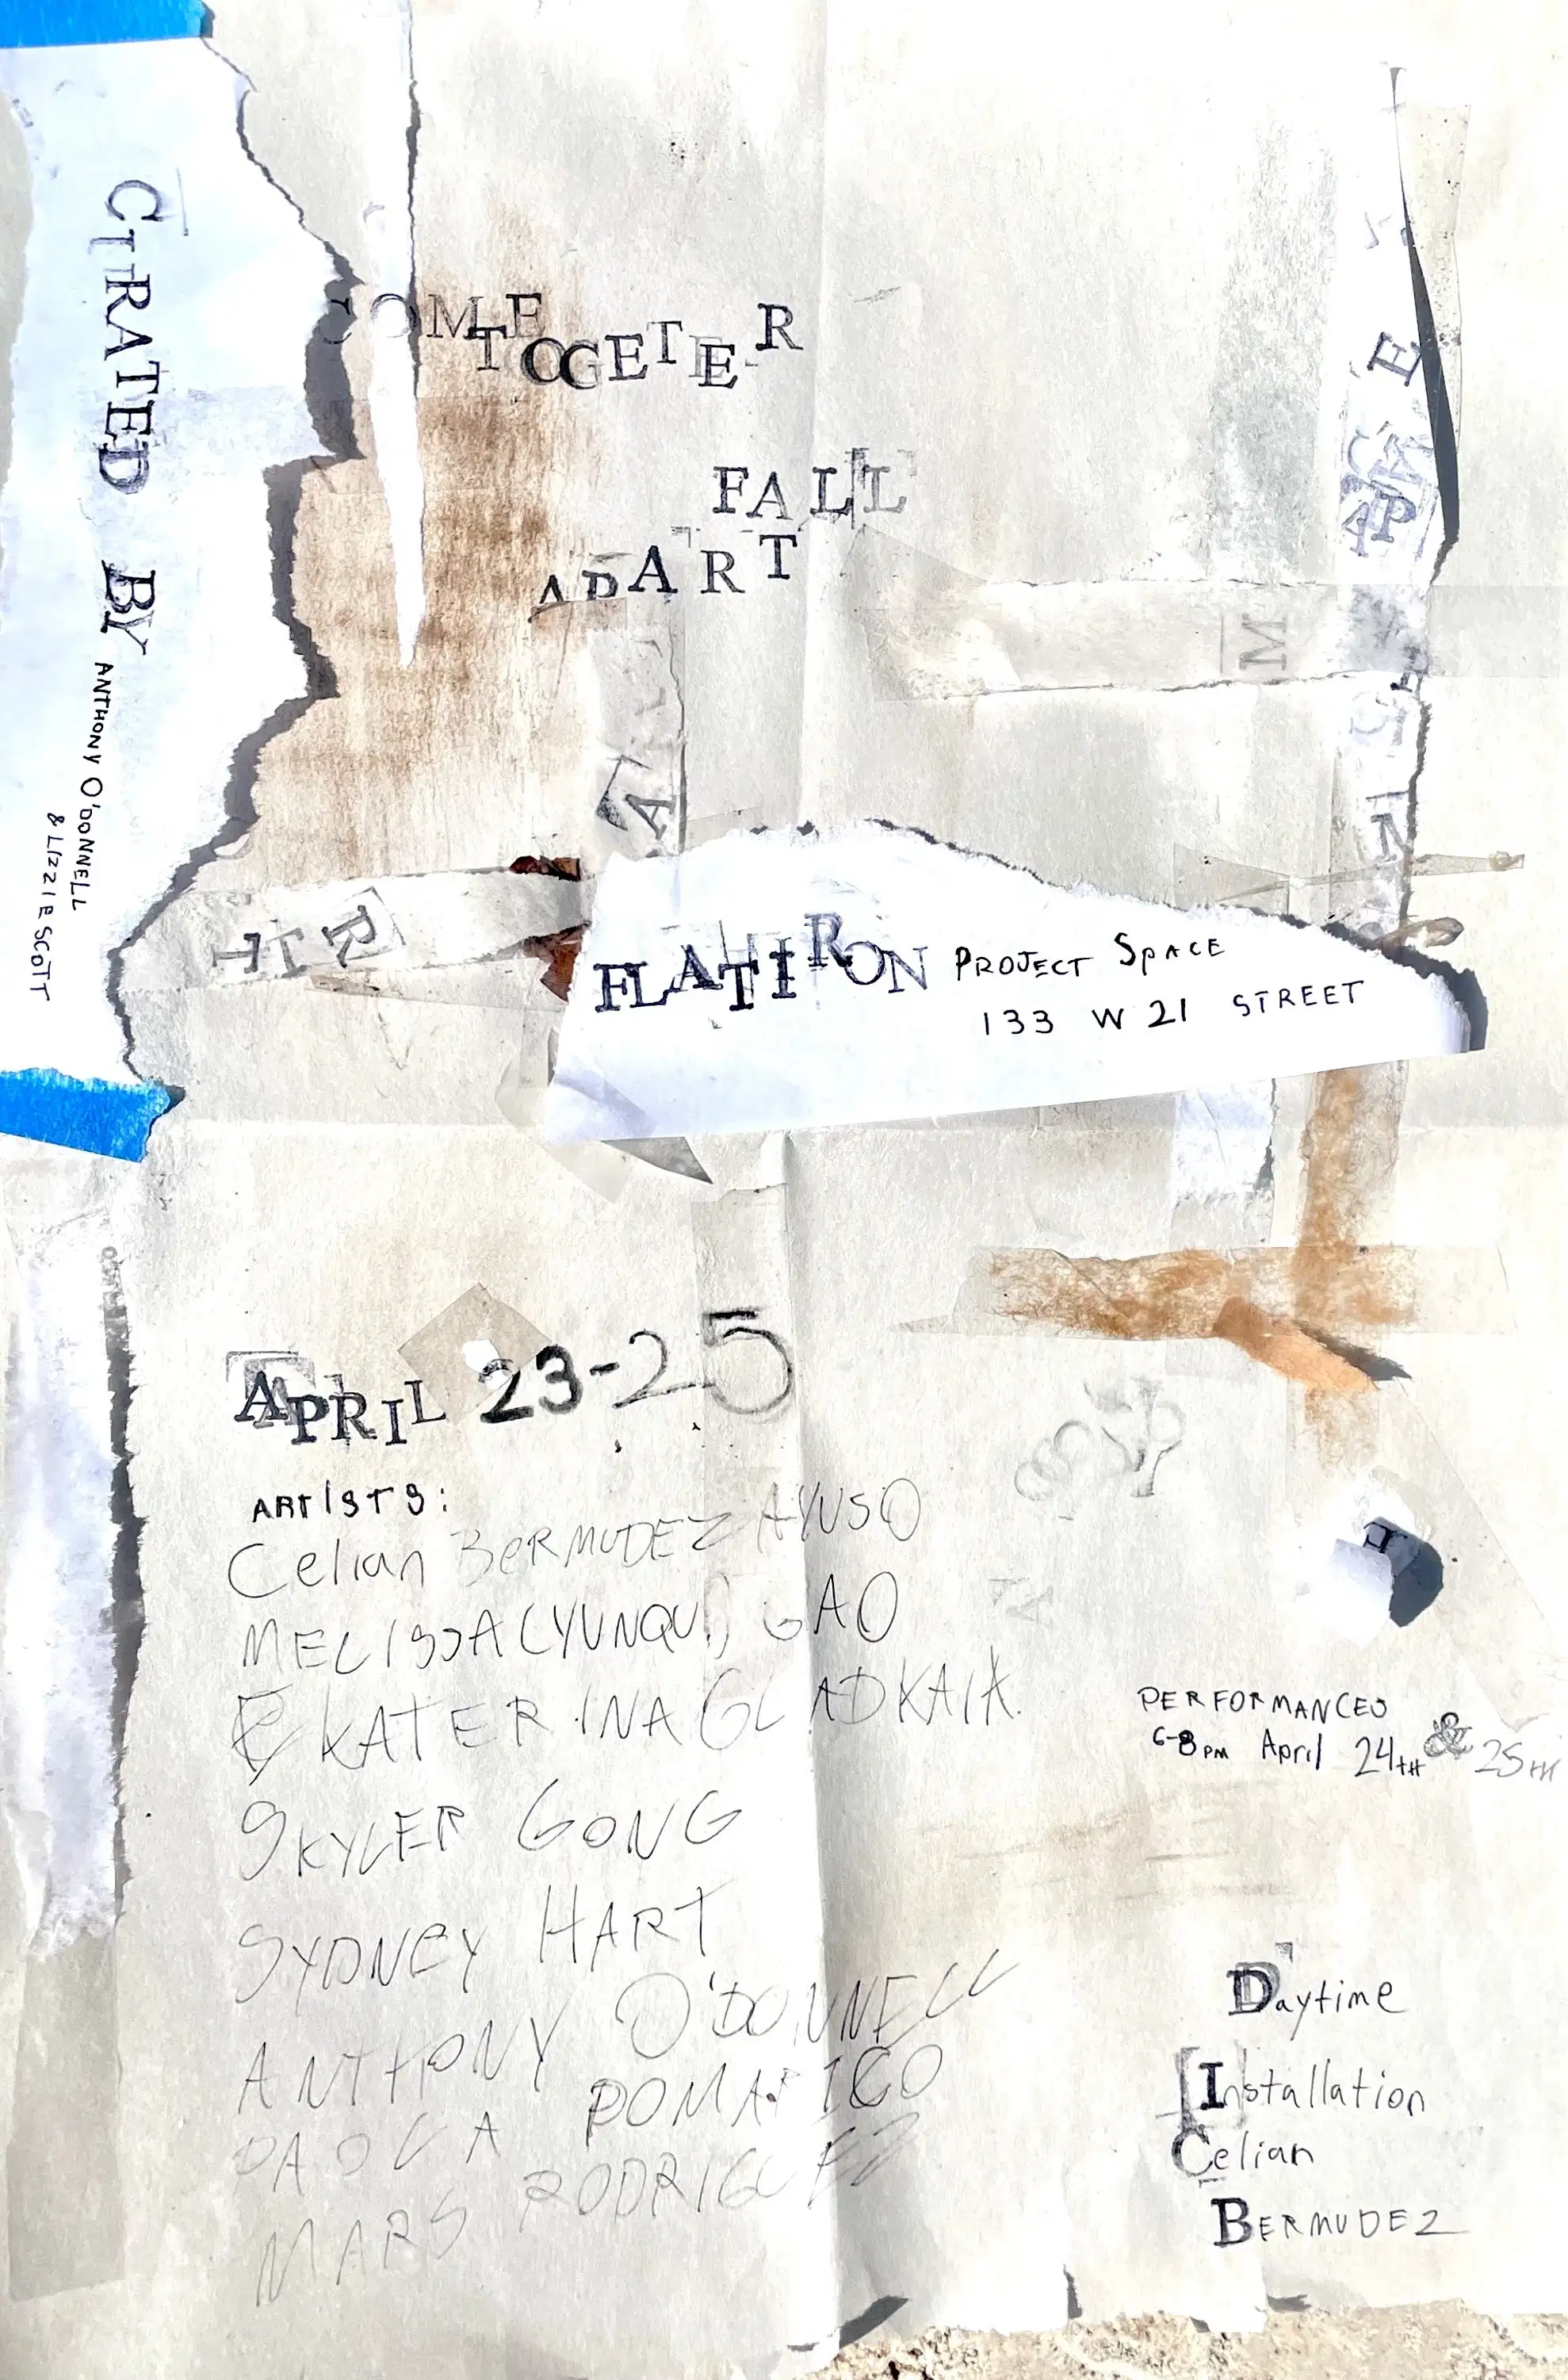 CURATED BY
ANTHONY O'DONNELL
& LIZZIE SCOTT
COME
TOGETER
FALL
APART
FLATIRON PROJECT SPACE
133 W 21 STREET
APRIL 23-25
ARTISTS:
Celian BERMUDEZ AYUSO
MELISSA (YUNQUI) GAO
EKATERINA GLADKAIA
SKYLER GONG
SYDNEY HART
ANTHONY O'DONNELL
PAOLA POMARICO
MARS RODRIGUEZ
PERFORMANCES
6-8PM April 24TH & 25TH
Daytime
Installation
Celian
BERMUDEZ